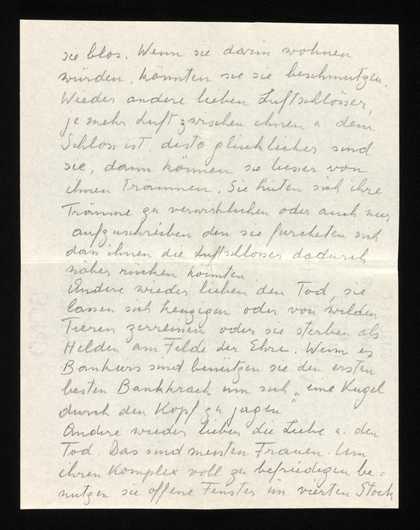 sie blos. Wenn sie darin wohnen
würden, könnten sie sie beschmutzen.
Wieder andere lieben Luftschlösser,
je mehr Luft zwischen ihnen u dem
Schloss ist, desto glücklicher sind
sie, dann können sie besser von
ihnen träumen. Sie hüten sich ihre
Träume zu verwirklichen oder auch nur
aufzuschreiben den sie fürchten sich
dass ihnen die Luftschlösser dadurch
näher rücken könnten
Andere wieder lieben den Tod, sie
lassen sich kreuzigen oder von wilden
Tieren zerreissen oder sie sterben als
Helden am Felde der Ehre. Wenn es
Bankiers sind benützen sie den ersten
besten Bankkrach um sich "eine Kugel
durch den Kopf zu jagen"
Andere wieder lieben die Liebe u. den
Tod. Das sind meisten Frauen. Um
ihren Komplex voll zu befriedigen be-
nutzen sie offene Fenster im vierten Stock